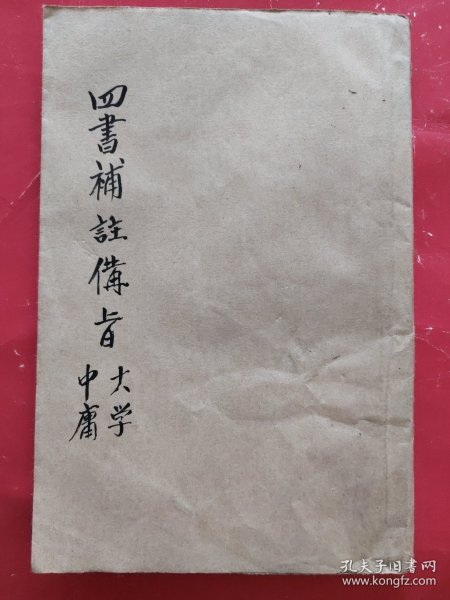 四書補註備旨
大学
中庸
孔夫子旧书网
www.kongfz.com